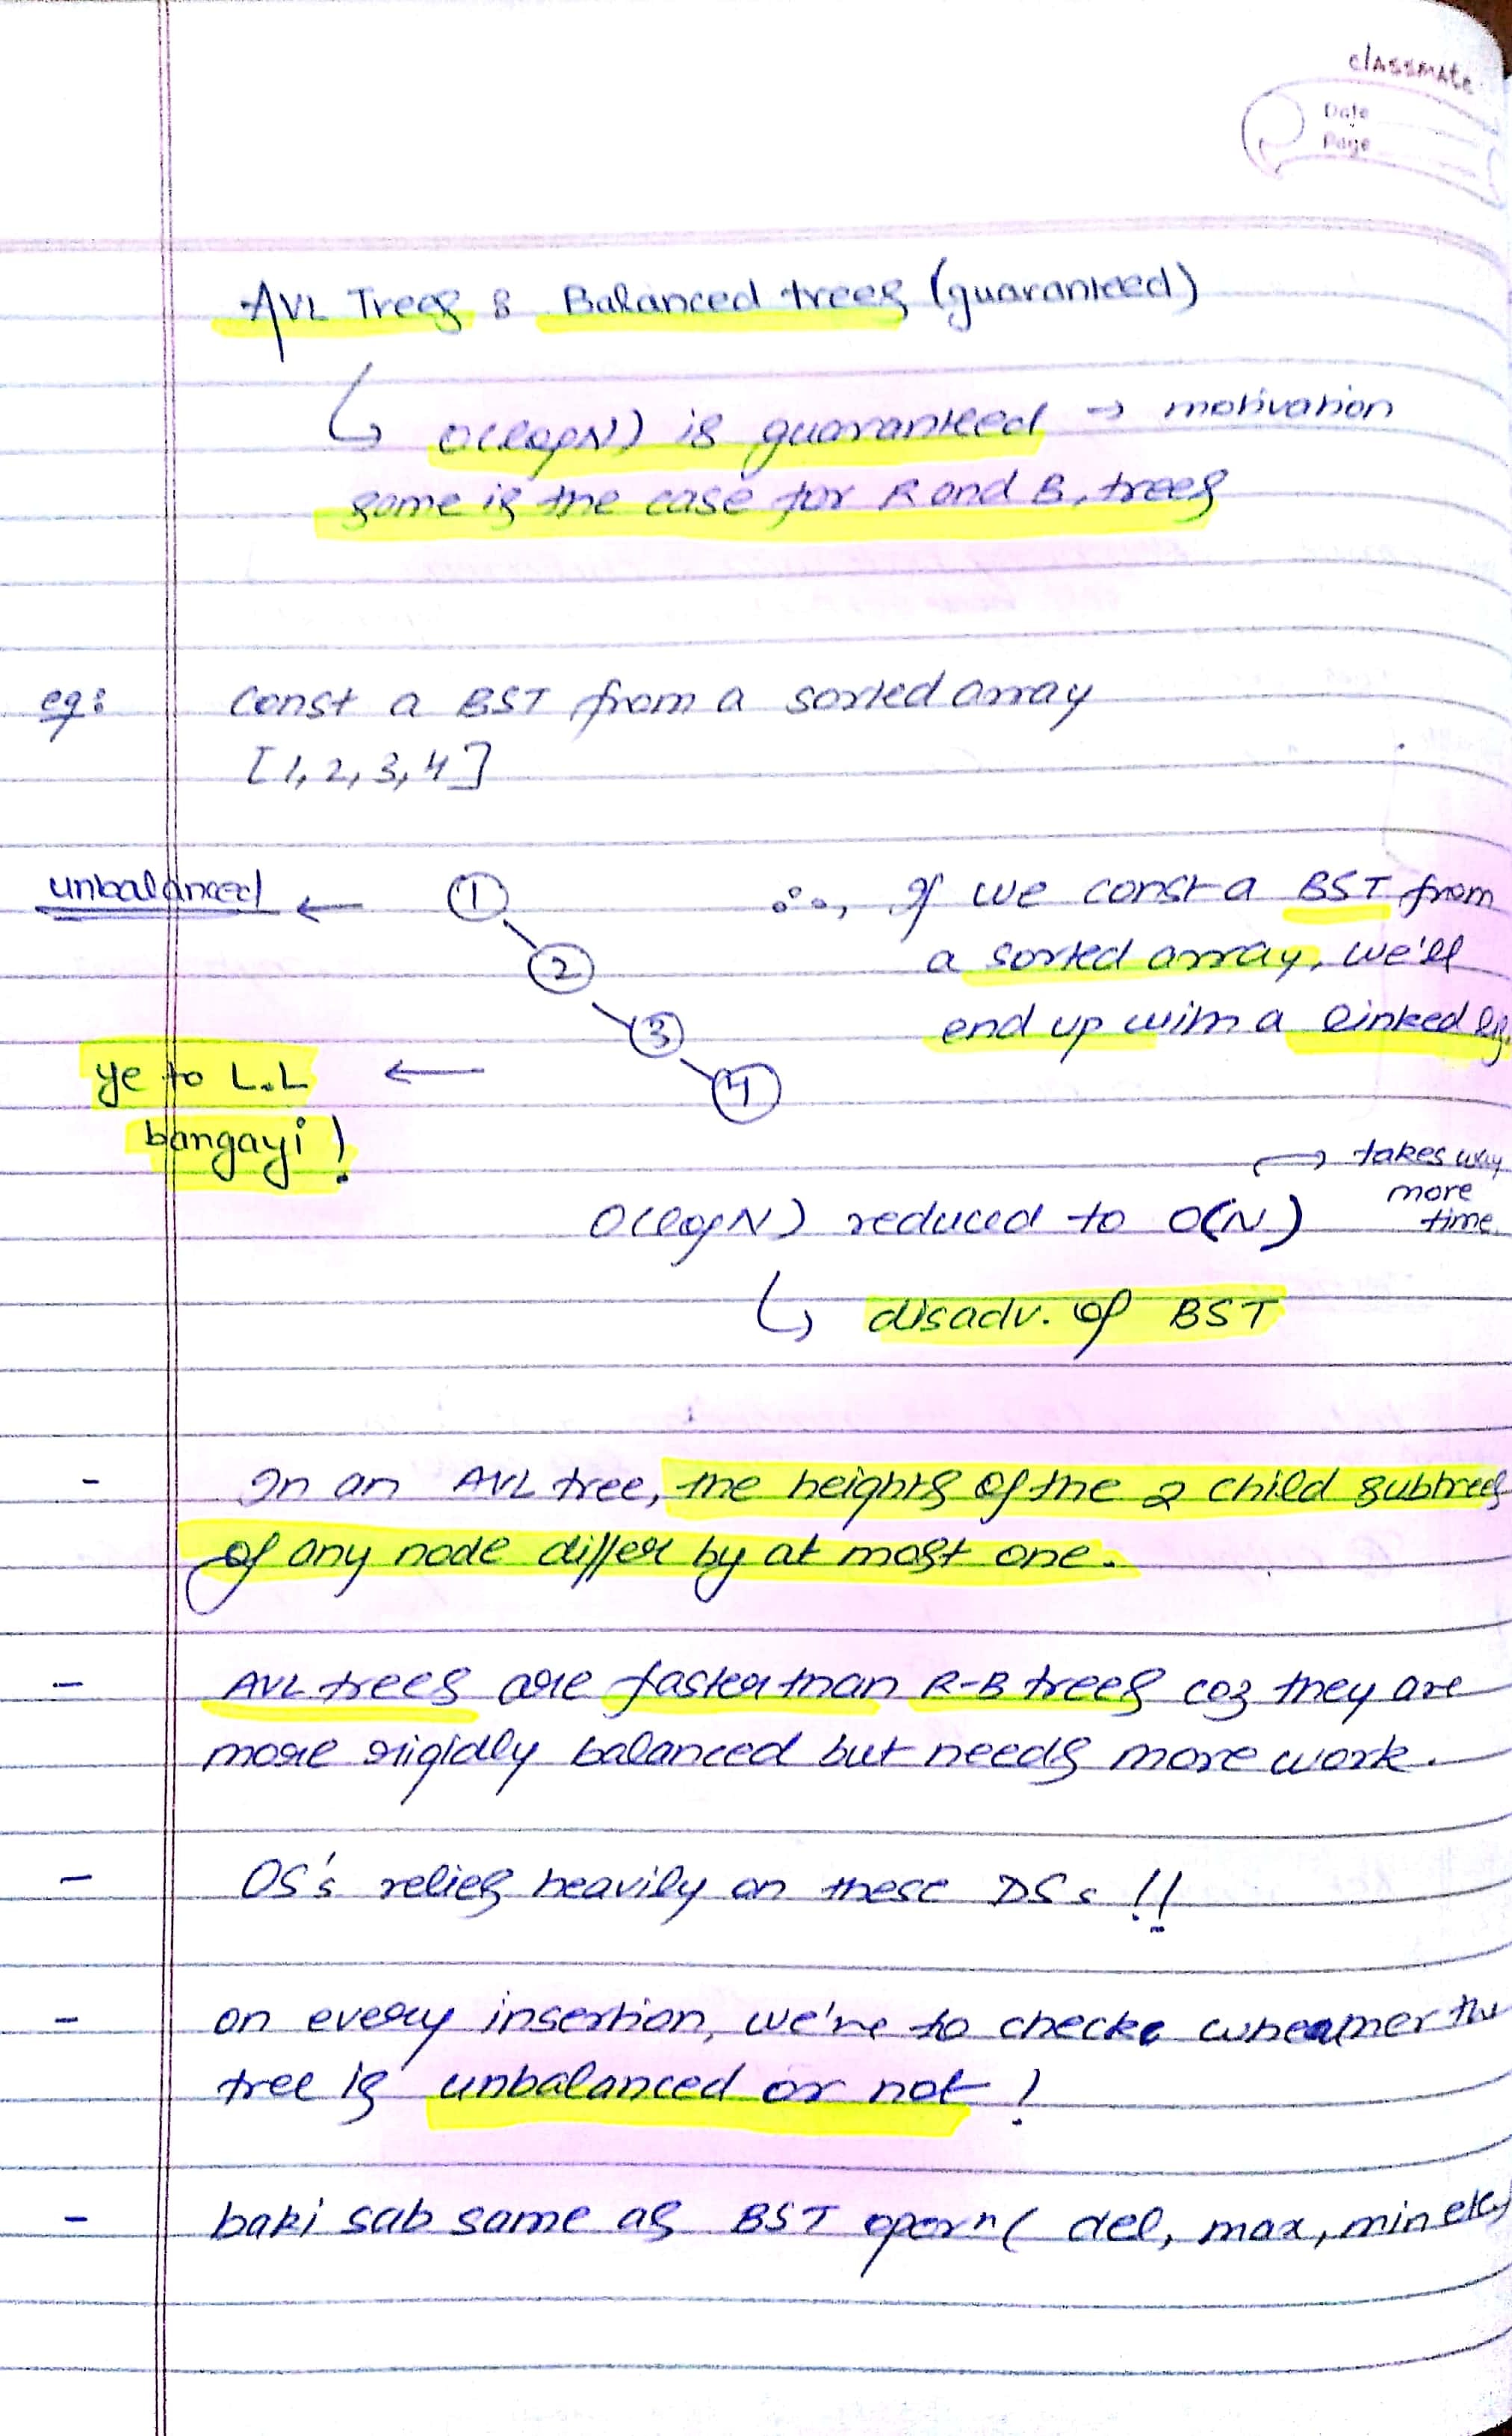 classmate
Date
Page
AVL Trees : Balanced trees (guaranteed)
↳ O(logN) is guaranteed → motivation
same is the case for R and B, trees
eg: Const a BST from a sorted array
[1, 2, 3, 4]
unbalanced ← 1
2
3
4
∴, If we const a BST from
a sorted array, we'll
end up with a linked
ye to L.L ←
bangayi!
→ takes way
more
time
O(logN) reduced to O(N)
↳ disadv. of BST
- In an AVL tree, the heights of the 2 child subtrees
of any node differ by at most one.
- AVL trees are faster than R-B trees coz they are
more rigidly balanced but needs more work.
- OS's relies heavily on these DSs !!
- on every insertion, we've to check whether the
tree is unbalanced or not !
- baki sab same as BST opern ( del, max, min etc)